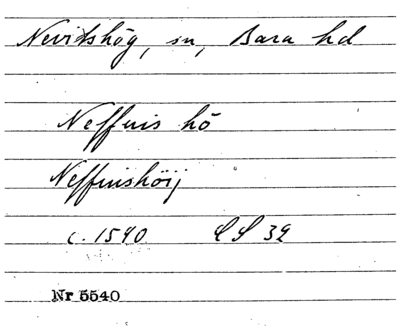 Nevitshög, sn, Bara hd
Neffuis hö
Neffuishöij
c. 1540 LS 32
Nr 5540